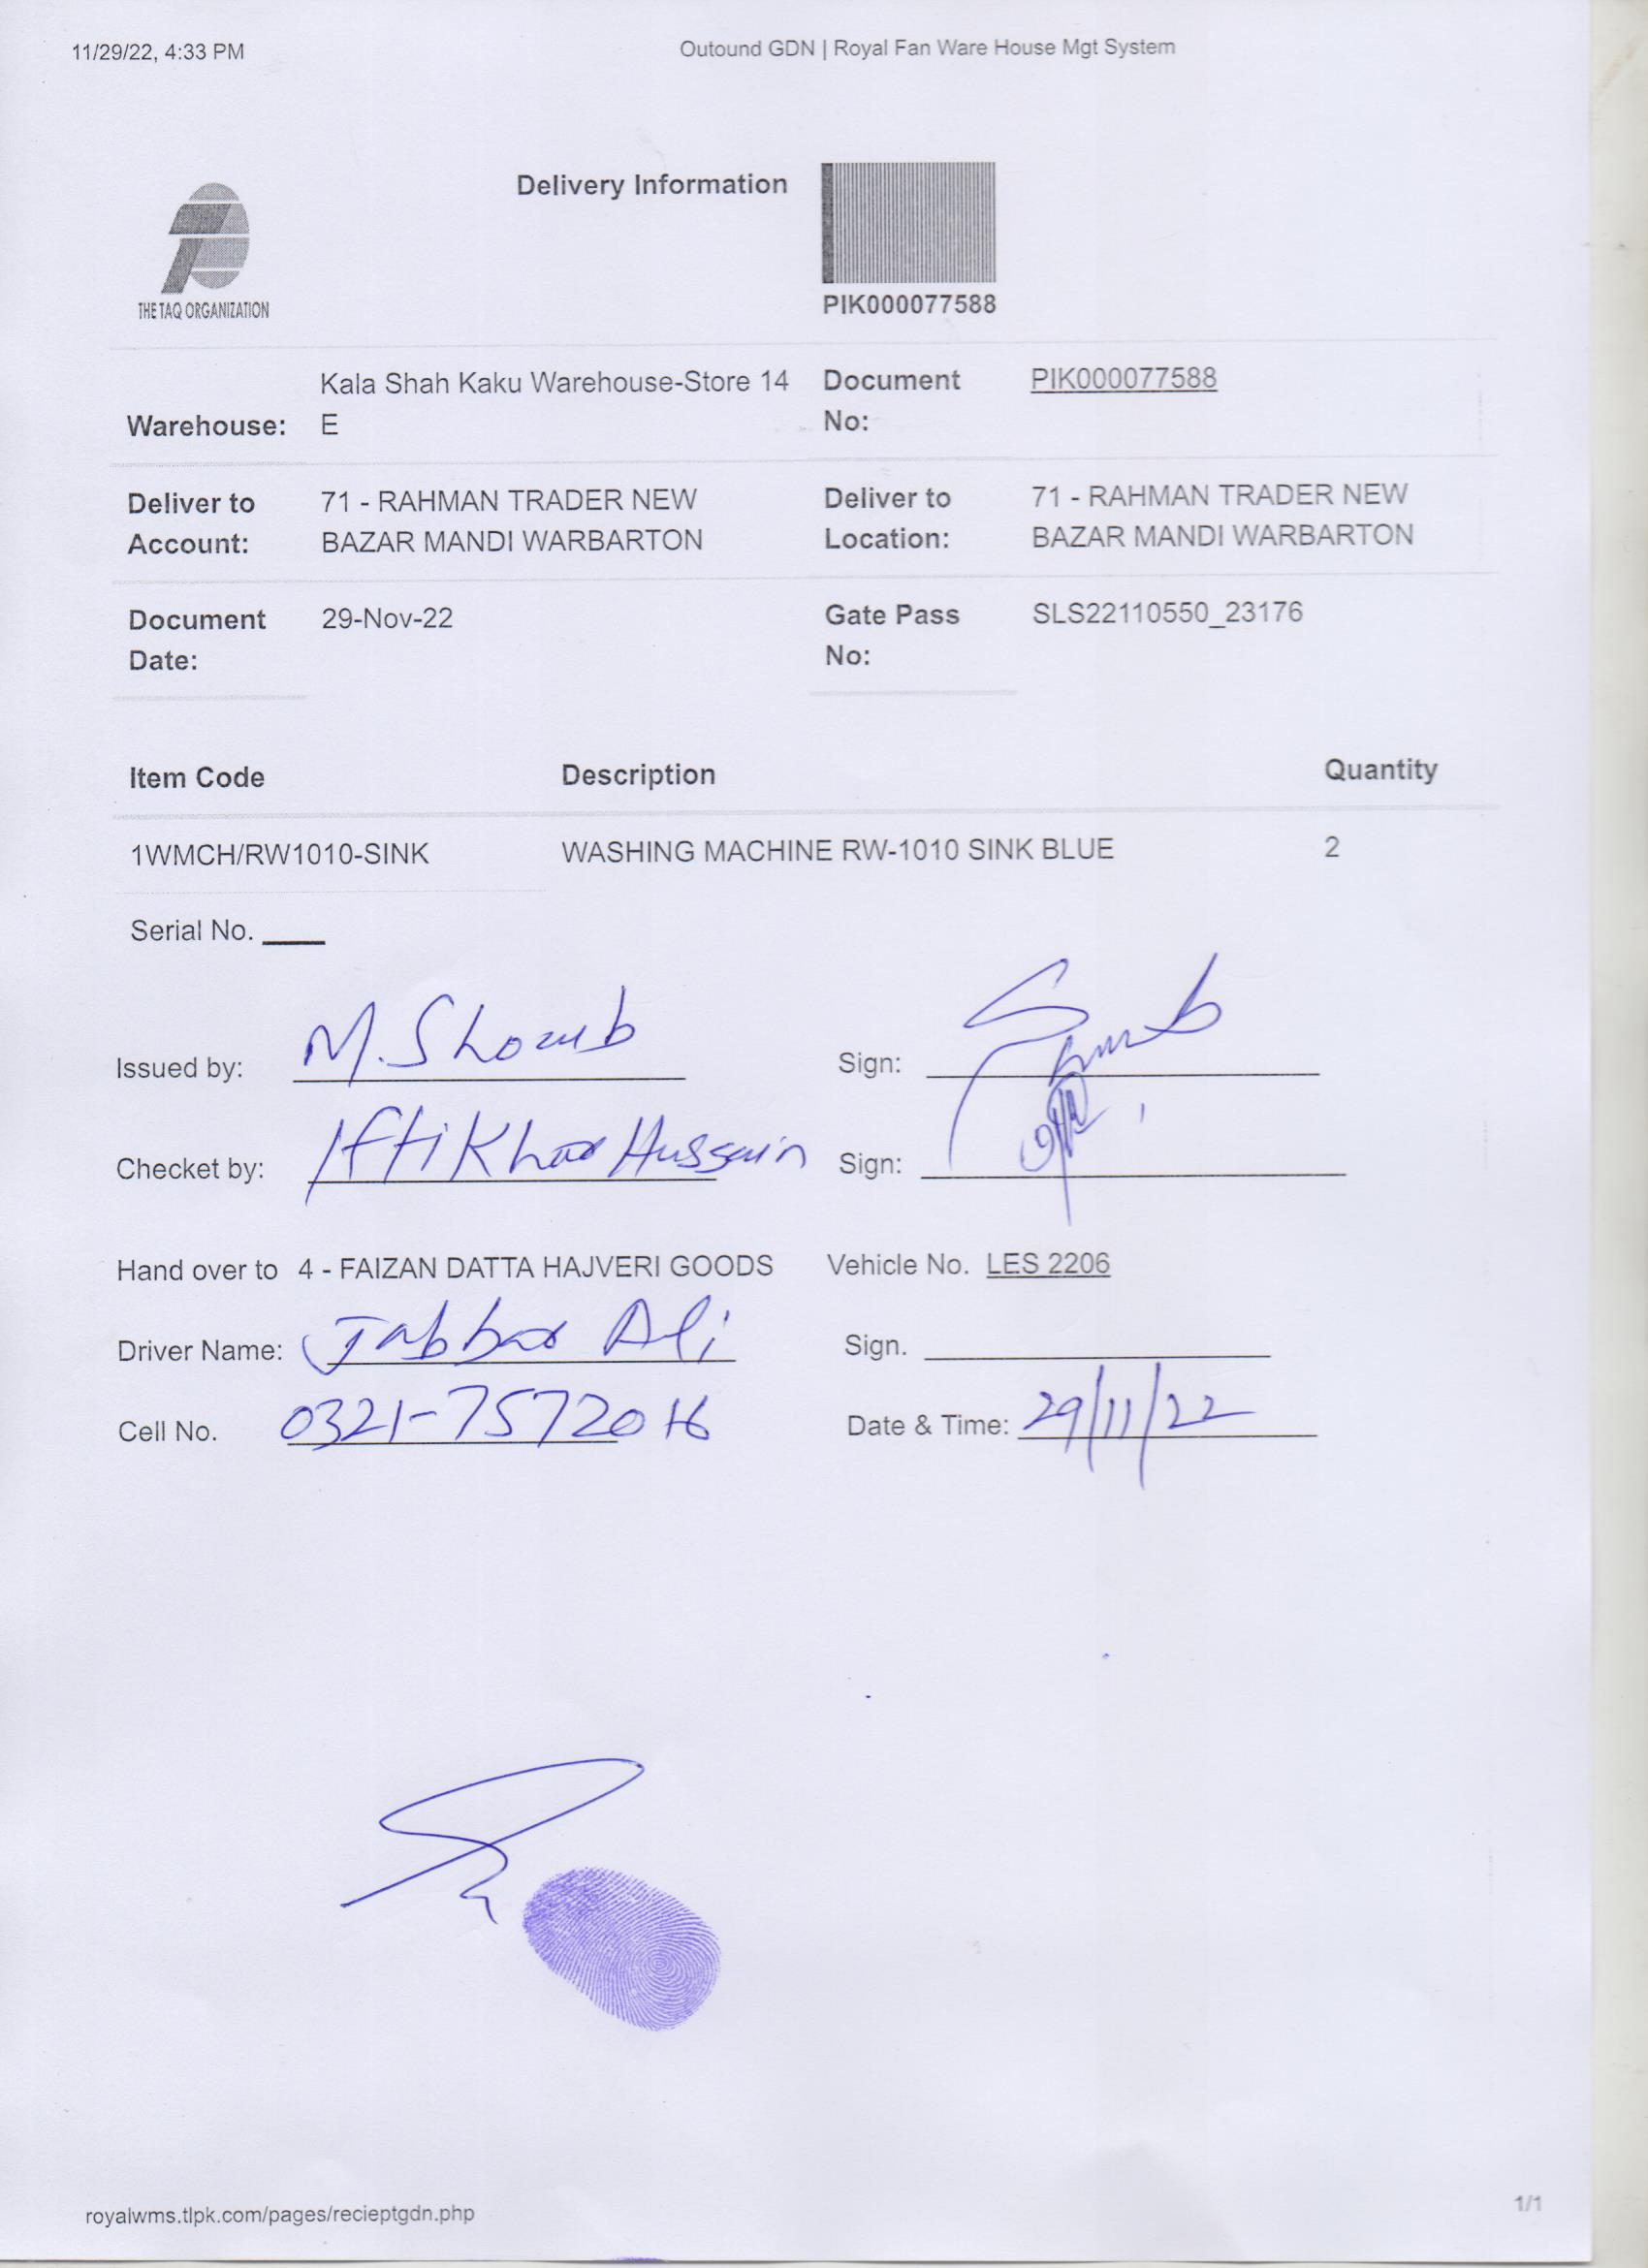 11/29/22, 4:33 PM
Outound GDN | Royal Fan Ware House Mgt System
Delivery Information
THE TAQ ORGANIZATION
PIK000077588
Warehouse: Kala Shah Kaku Warehouse-Store 14 E
Document No: PIK000077588
Deliver to Account: 71 - RAHMAN TRADER NEW BAZAR MANDI WARBARTON
Deliver to Location: 71 - RAHMAN TRADER NEW BAZAR MANDI WARBARTON
Document Date: 29-Nov-22
Gate Pass No: SLS22110550_23176
Item Code Description Quantity
1WMCH/RW1010-SINK WASHING MACHINE RW-1010 SINK BLUE 2
Serial No.
Issued by: M. Sign:
Checket by: Iftikhar Hussain Sign:
Hand over to 4 - FAIZAN DATTA HAJVERI GOODS Vehicle No. LES 2206
Driver Name: Jabbar Ali Sign.
Cell No. Date & Time: 29/11/22
royalwms.tlpk.com/pages/recieptgdn.php
1/1